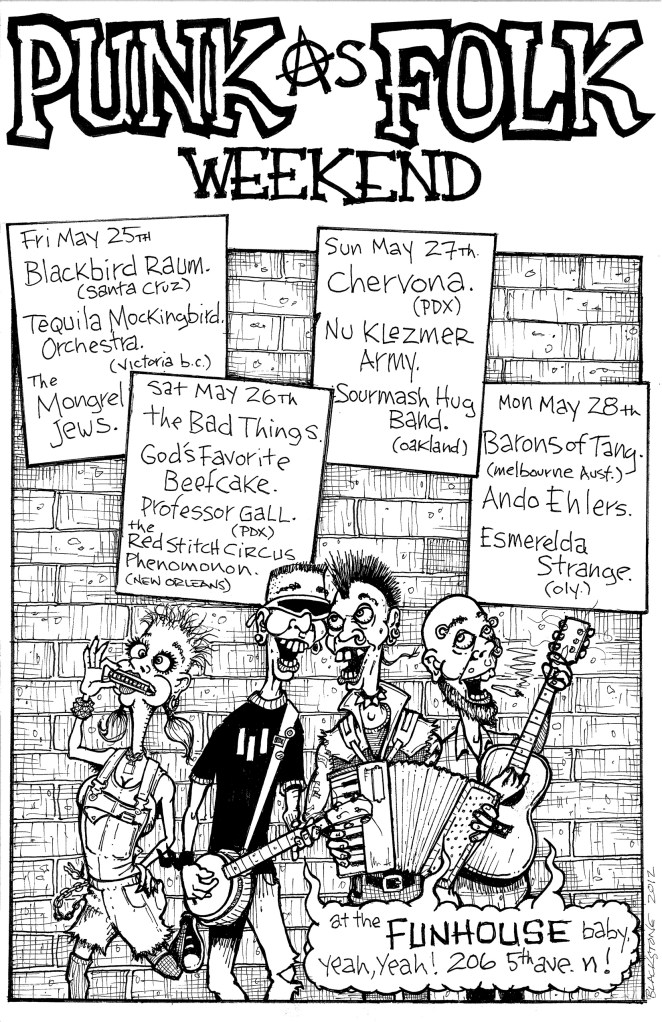 PUNK AS FOLK
WEEKEND
Fri May 25TH
Blackbird Raum.
(Santa Cruz)
Tequila Mockingbird
Orchestra.
(Victoria b.c.)
The
Mongrel
Jews.
Sat May 26TH
the Bad Things.
God's Favorite
Beefcake.
Professor Gall.
(PDX)
the
Red Stitch Circus
Phenomonon.
(NEW ORLEANS)
Sun May 27th.
Chervona.
(PDX)
Nu Klezmer
Army.
Sourmash Hug
Band.
(oakland)
Mon May 28th
Barons of Tang.
(melbourne Aust.)
Ando Ehlers.
Esmerelda
Strange.
(oly.)
at the FUNHOUSE baby,
yeah, Yeah! 206 5th ave. n!
BLACKSTONE 2012